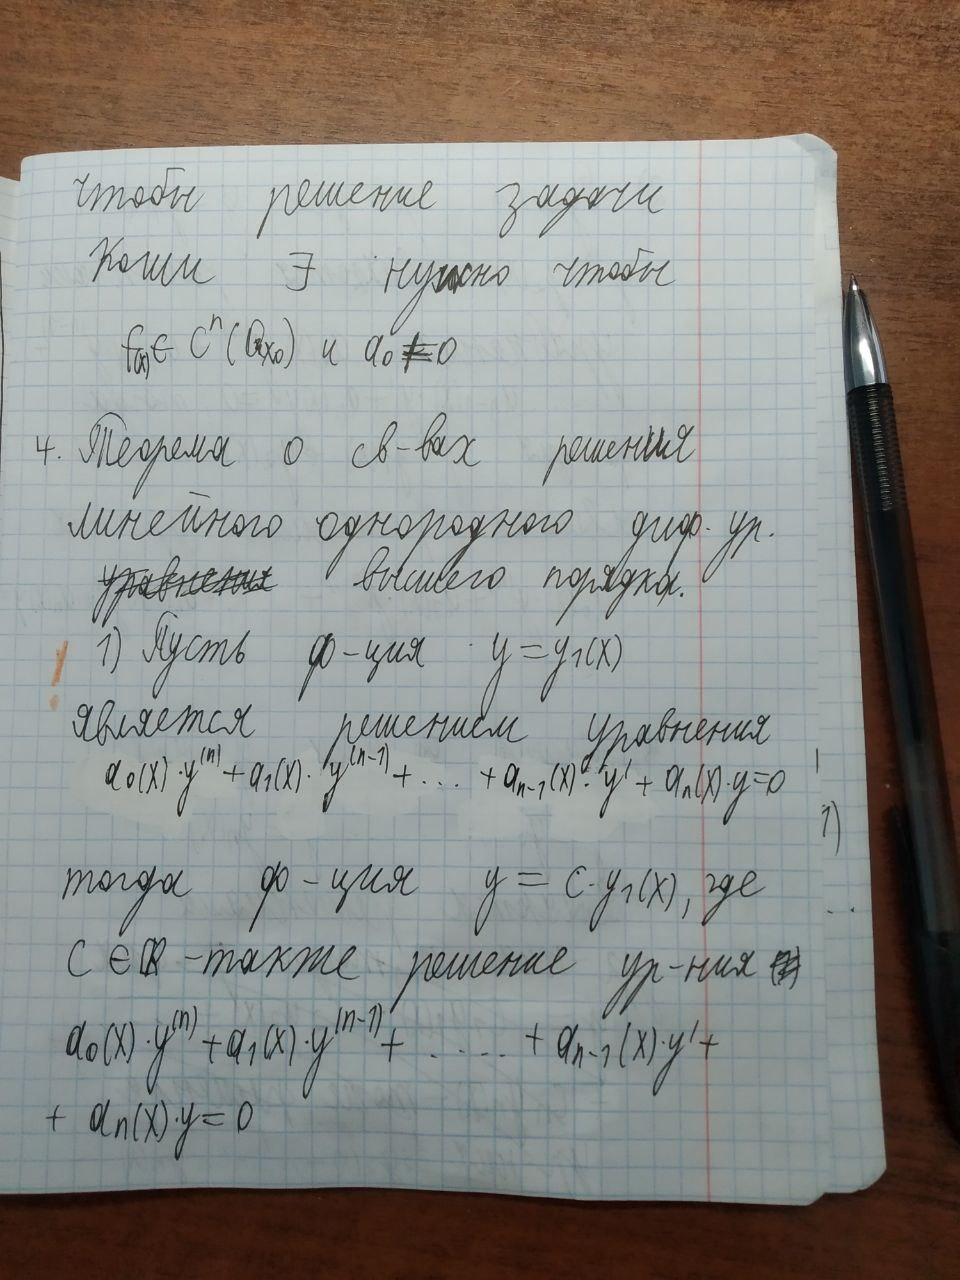 чтобы решение задачи
Коши ∃ нужно чтобы
f(x) ∈ Cⁿ(Ωx₀) и a₀ ≠ 0
4. Теорема о св-вах решения
линейного однородного диф. ур.
высшего порядка.
! 1) Пусть ф-ция y = y₁(x)
является решением уравнения
a₀(x)·y⁽ⁿ⁾ + a₁(x)·y⁽ⁿ⁻¹⁾ + .... + aₙ₋₁(x)·y' + aₙ(x)·y=0
1)
тогда ф-ция y = c·y₁(x), где
C ∈ ℝ - также решение ур-ния
a₀(x)·y⁽ⁿ⁾ + a₁(x)·y⁽ⁿ⁻¹⁾ + ..... + aₙ₋₁(x)·y' +
+ aₙ(x)·y = 0